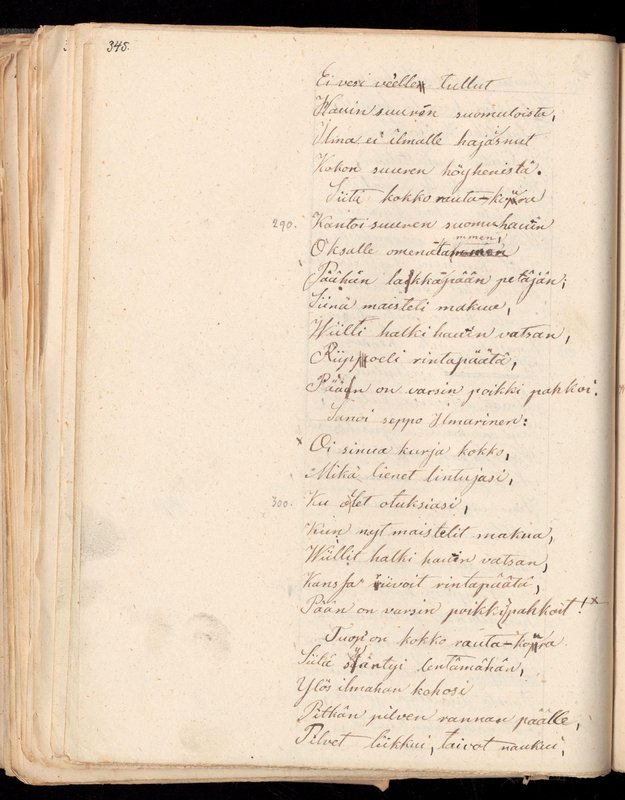 345.
Ei vesi veelle tullut
Hauin suuren suomuloista,
Ilma ei ilmalle hajasnut
Kokon suuren höyhenistä.
Siitä kokko rauta-koura
290. Kantoi suuren suomuhauin
Oksalle omenatammen,
Päähän lakkapään petäjän;
Siinä maisteli makua,
Wiilti halki hauin vatsan,
Riipoeli rintapäätä,
Pään on varsin poikki pahkoi.
Sanoi seppo Ilmarinen:
x Oi sinua kurja kokko,
Mikä lienet lintujasi,
300. Ku olet otuksiasi,
Kun nyt maistelit makua,
Wiillit halki hauin vatsan,
Kanssa riivoit rintapäätä,
Pään on varsin poikki pahkoit! x
Tuop' on kokko rauta-koura
Siitä sääntyi lentämähän,
Ylös ilmahan kohosi
Pitkän pilven rannan päälle,
Pilvet liikkui, taivot naukui,